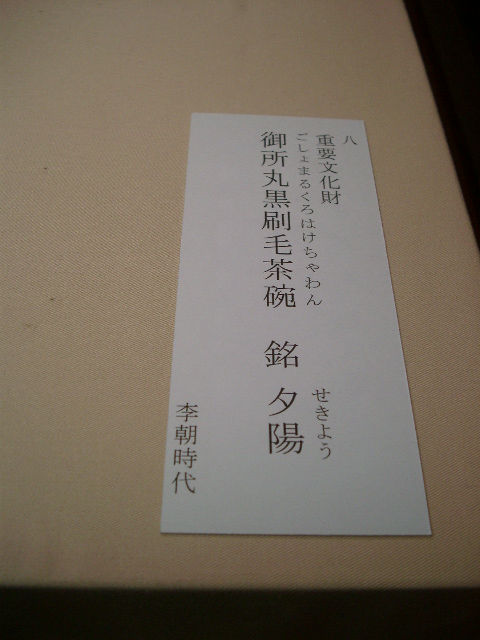 八
重要文化財
ごしょまるくろはけちゃわん
せきよう
御所丸黒刷毛茶碗 銘 夕陽
李朝時代